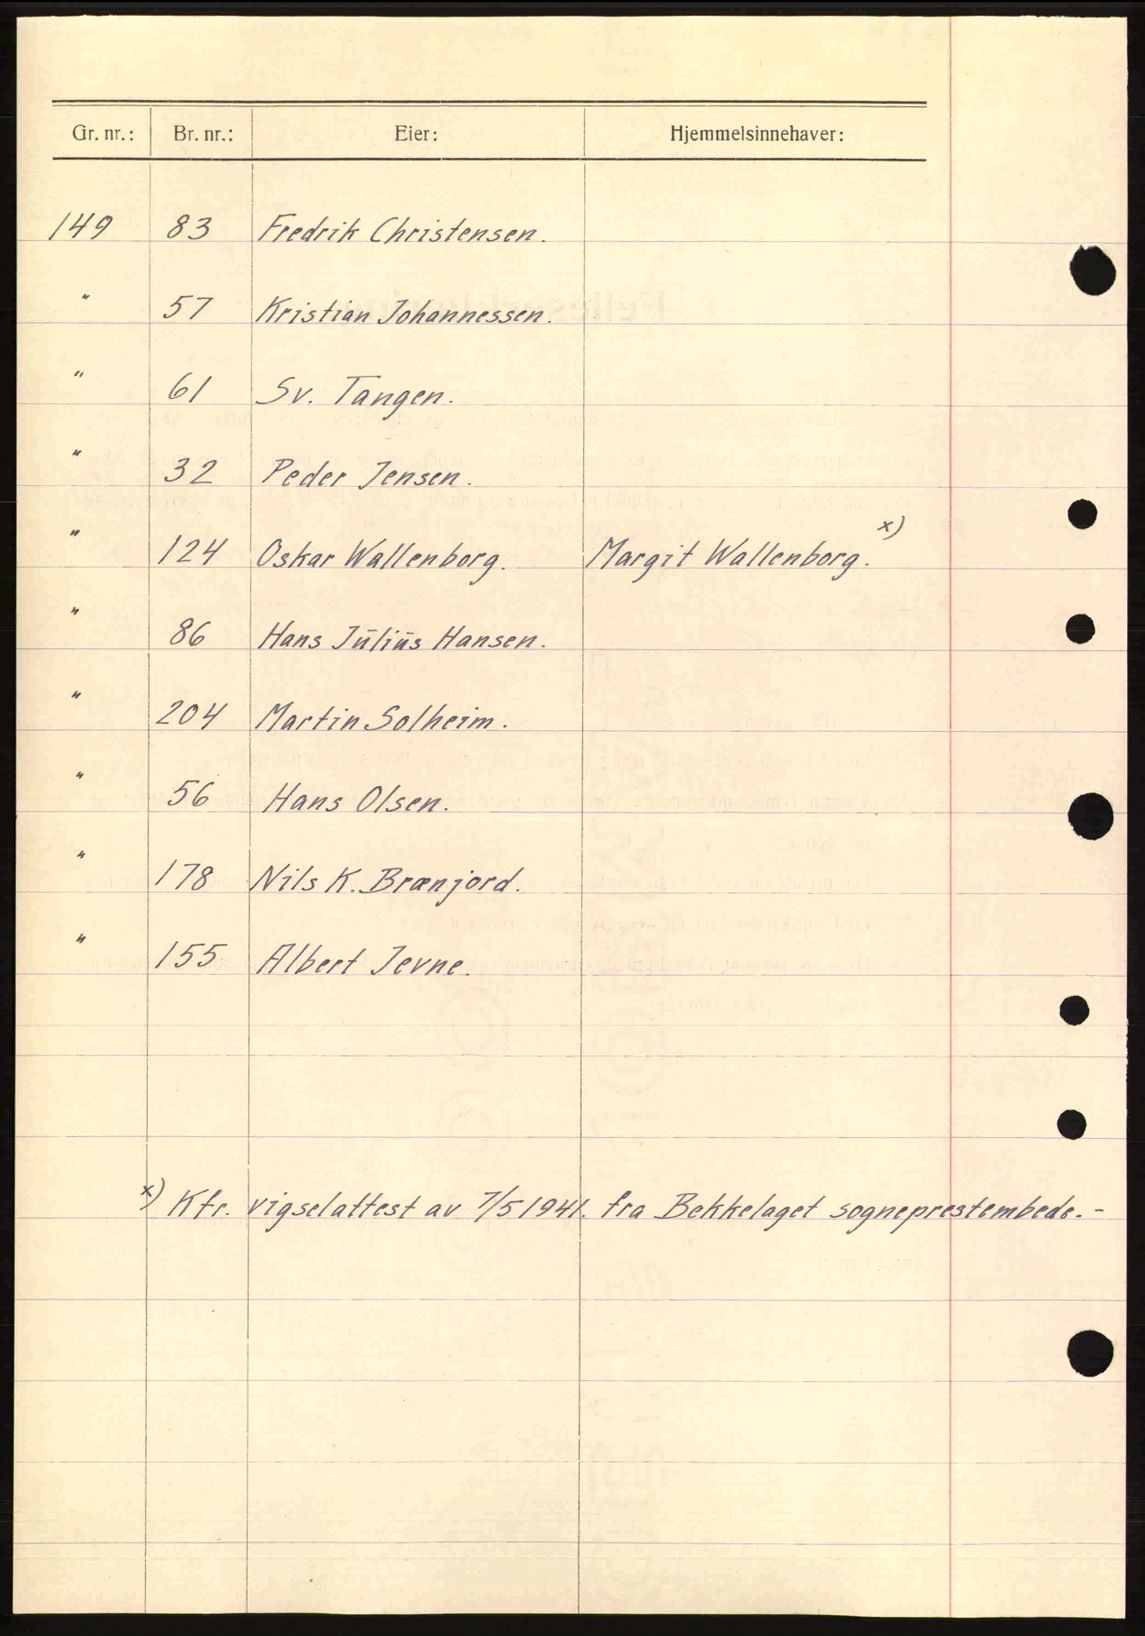 Gr. nr.: Br. nr.: Eier: Hjemmelsinnehaver:
149 83 Fredrik Christensen.
" 57 Kristian Johannessen.
" 61 Sv. Tangen.
" 32 Peder Jensen.
" 124 Oskar Wallenborg. Margit Wallenborg. x)
" 86 Hans Julius Hansen.
" 204 Martin Solheim.
" 56 Hans Olsen.
" 178 Nils K. Brænjord.
" 155 Albert Jevne.
x) Kfr. vigselattest av 7/5 1941. fra Bekkelaget sogneprestembede. -